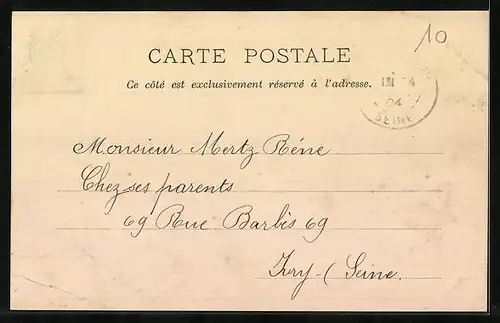 10
CARTE POSTALE
Ce côté est exclusivement réservé à l'adresse.
04
SEINE
Monsieur Mertz Réne
Chez ses parents
69 Rue Barbès 69
Ivry-(Seine.